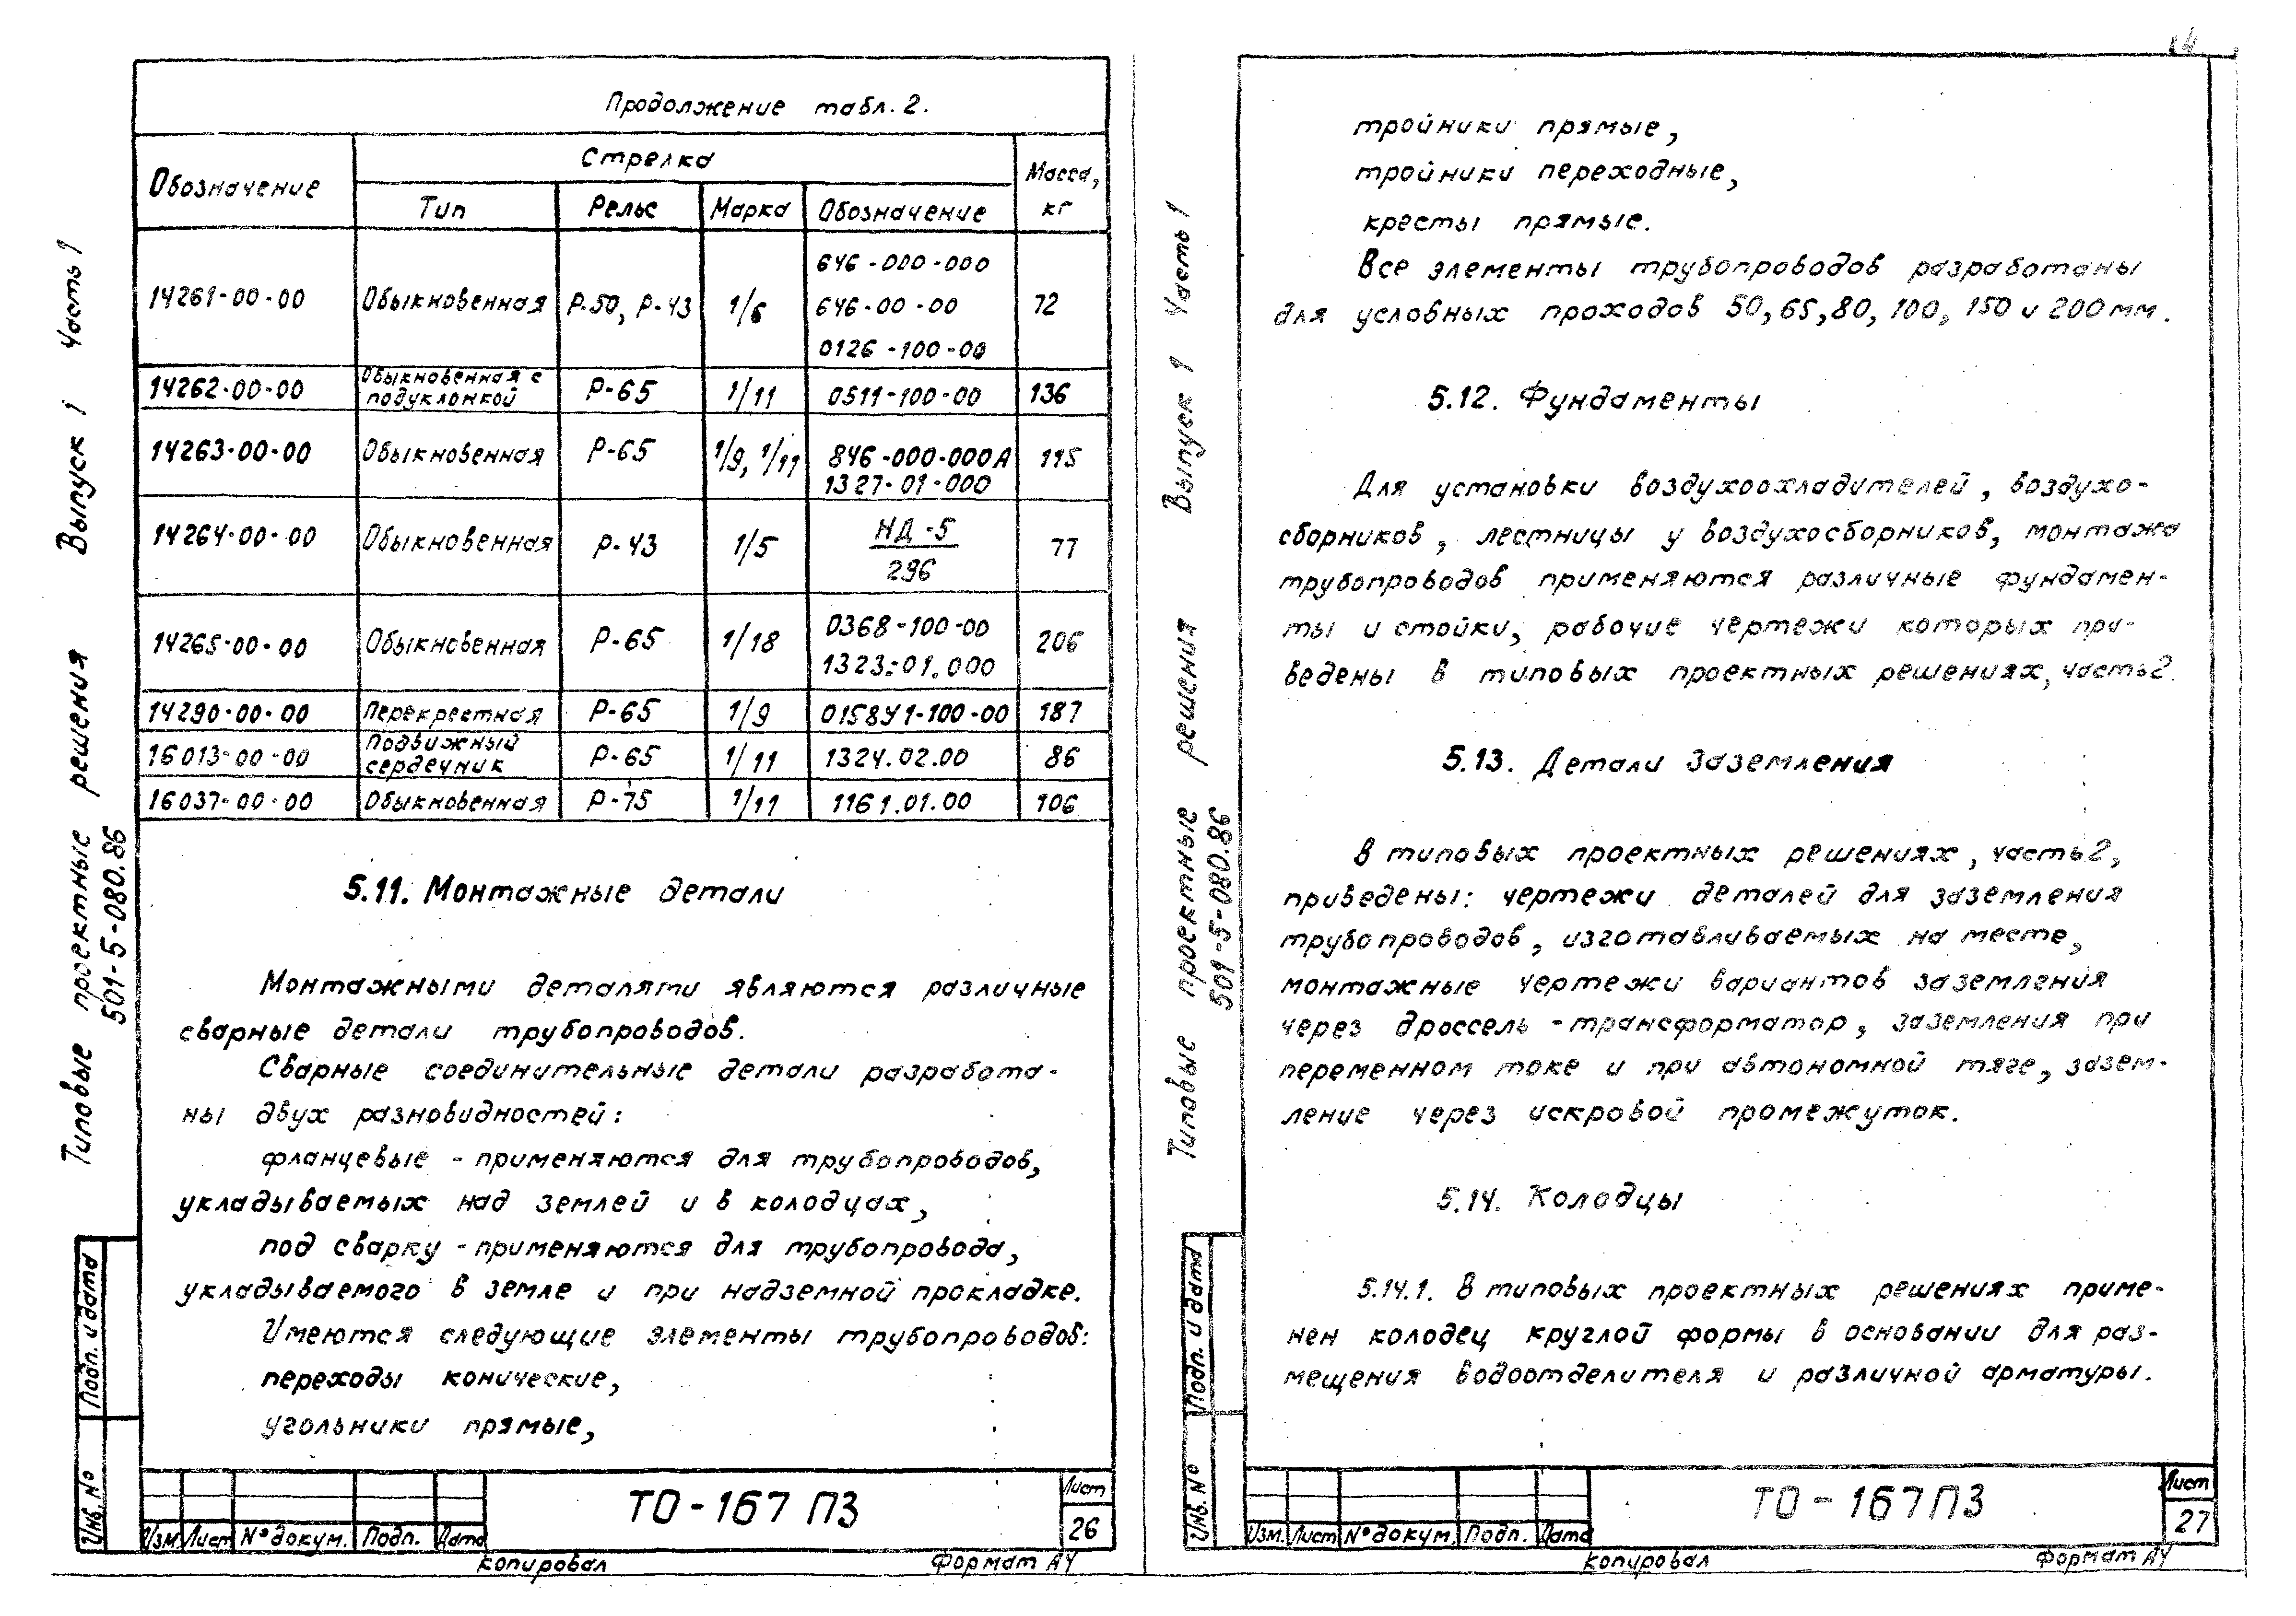 Типовые проектные решения Выпуск 1 Часть 1
501-5-080.86
Продолжение табл. 2.
Обозначение Стрелка Масса, кг
Тип Рельс Марка Обозначение
14261-00-00 Обыкновенная Р-50, Р-43 1/6 646-000-000 72
646-00-00
0126-100-00
14262-00-00 Обыкновенная с подуклонкой Р-65 1/11 0511-100-00 136
14263-00-00 Обыкновенная Р-65 1/9, 1/11 846-000-000А 115
1327-01-000
14264-00-00 Обыкновенная Р-43 1/5 НД-5 77
296
14265-00-00 Обыкновенная Р-65 1/18 0368-100-00 206
1323.01.000
14290-00-00 Перекрестная Р-65 1/9 0158У1-100-00 187
16013-00-00 Подвижный сердечник Р-65 1/11 1324.02.00 86
16037-00-00 Обыкновенная Р-75 1/11 1161.01.00 106
5.11. Монтажные детали
Монтажными деталями являются различные
сварные детали трубопроводов.
Сварные соединительные детали разработа-
ны двух разновидностей:
фланцевые - применяются для трубопроводов,
укладываемых над землей и в колодцах,
под сварку - применяются для трубопровода,
укладываемого в земле и при надземной прокладке.
Имеются следующие элементы трубопроводов:
переходы конические,
угольники прямые,
Подп. и дата
Инв. №
Изм. Лист № докум. Подп. Дата
ТО-167 ПЗ
Лист
26
Копировал Формат А4
14
Типовые проектные решения Выпуск 1 Часть 1
501-5-080.86
тройники прямые,
тройники переходные,
кресты прямые.
Все элементы трубопроводов разработаны
для условных проходов 50, 65, 80, 100, 150 и 200 мм.
5.12. Фундаменты
Для установки воздухоохладителей, воздухо-
сборников, лестницы у воздухосборников, монтажа
трубопроводов применяются различные фундамен-
ты и стойки, рабочие чертежи которых при-
ведены в типовых проектных решениях, часть 2.
5.13. Детали заземления
В типовых проектных решениях, часть 2,
приведены: чертежи деталей для заземления
трубопроводов, изготавливаемых на месте,
монтажные чертежи вариантов заземления
через дроссель-трансформатор, заземления при
переменном токе и при автономной тяге, зазем-
ление через искровой промежуток.
5.14. Колодцы
5.14.1. В типовых проектных решениях приме-
нен колодец круглой формы в основании для раз-
мещения водоотделителя и различной арматуры.
Подп. и дата
Инв. №
Изм. Лист № докум. Подп. Дата
ТО-167 ПЗ
Лист
27
Копировал Формат А4